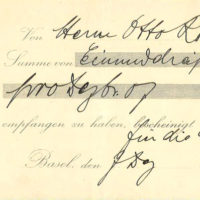 Von Herrn Otto
Summe von Einunddrei
pro Dezbr. 07
empfangen zu haben, bescheinigt
für die
Basel, den 7 Dez